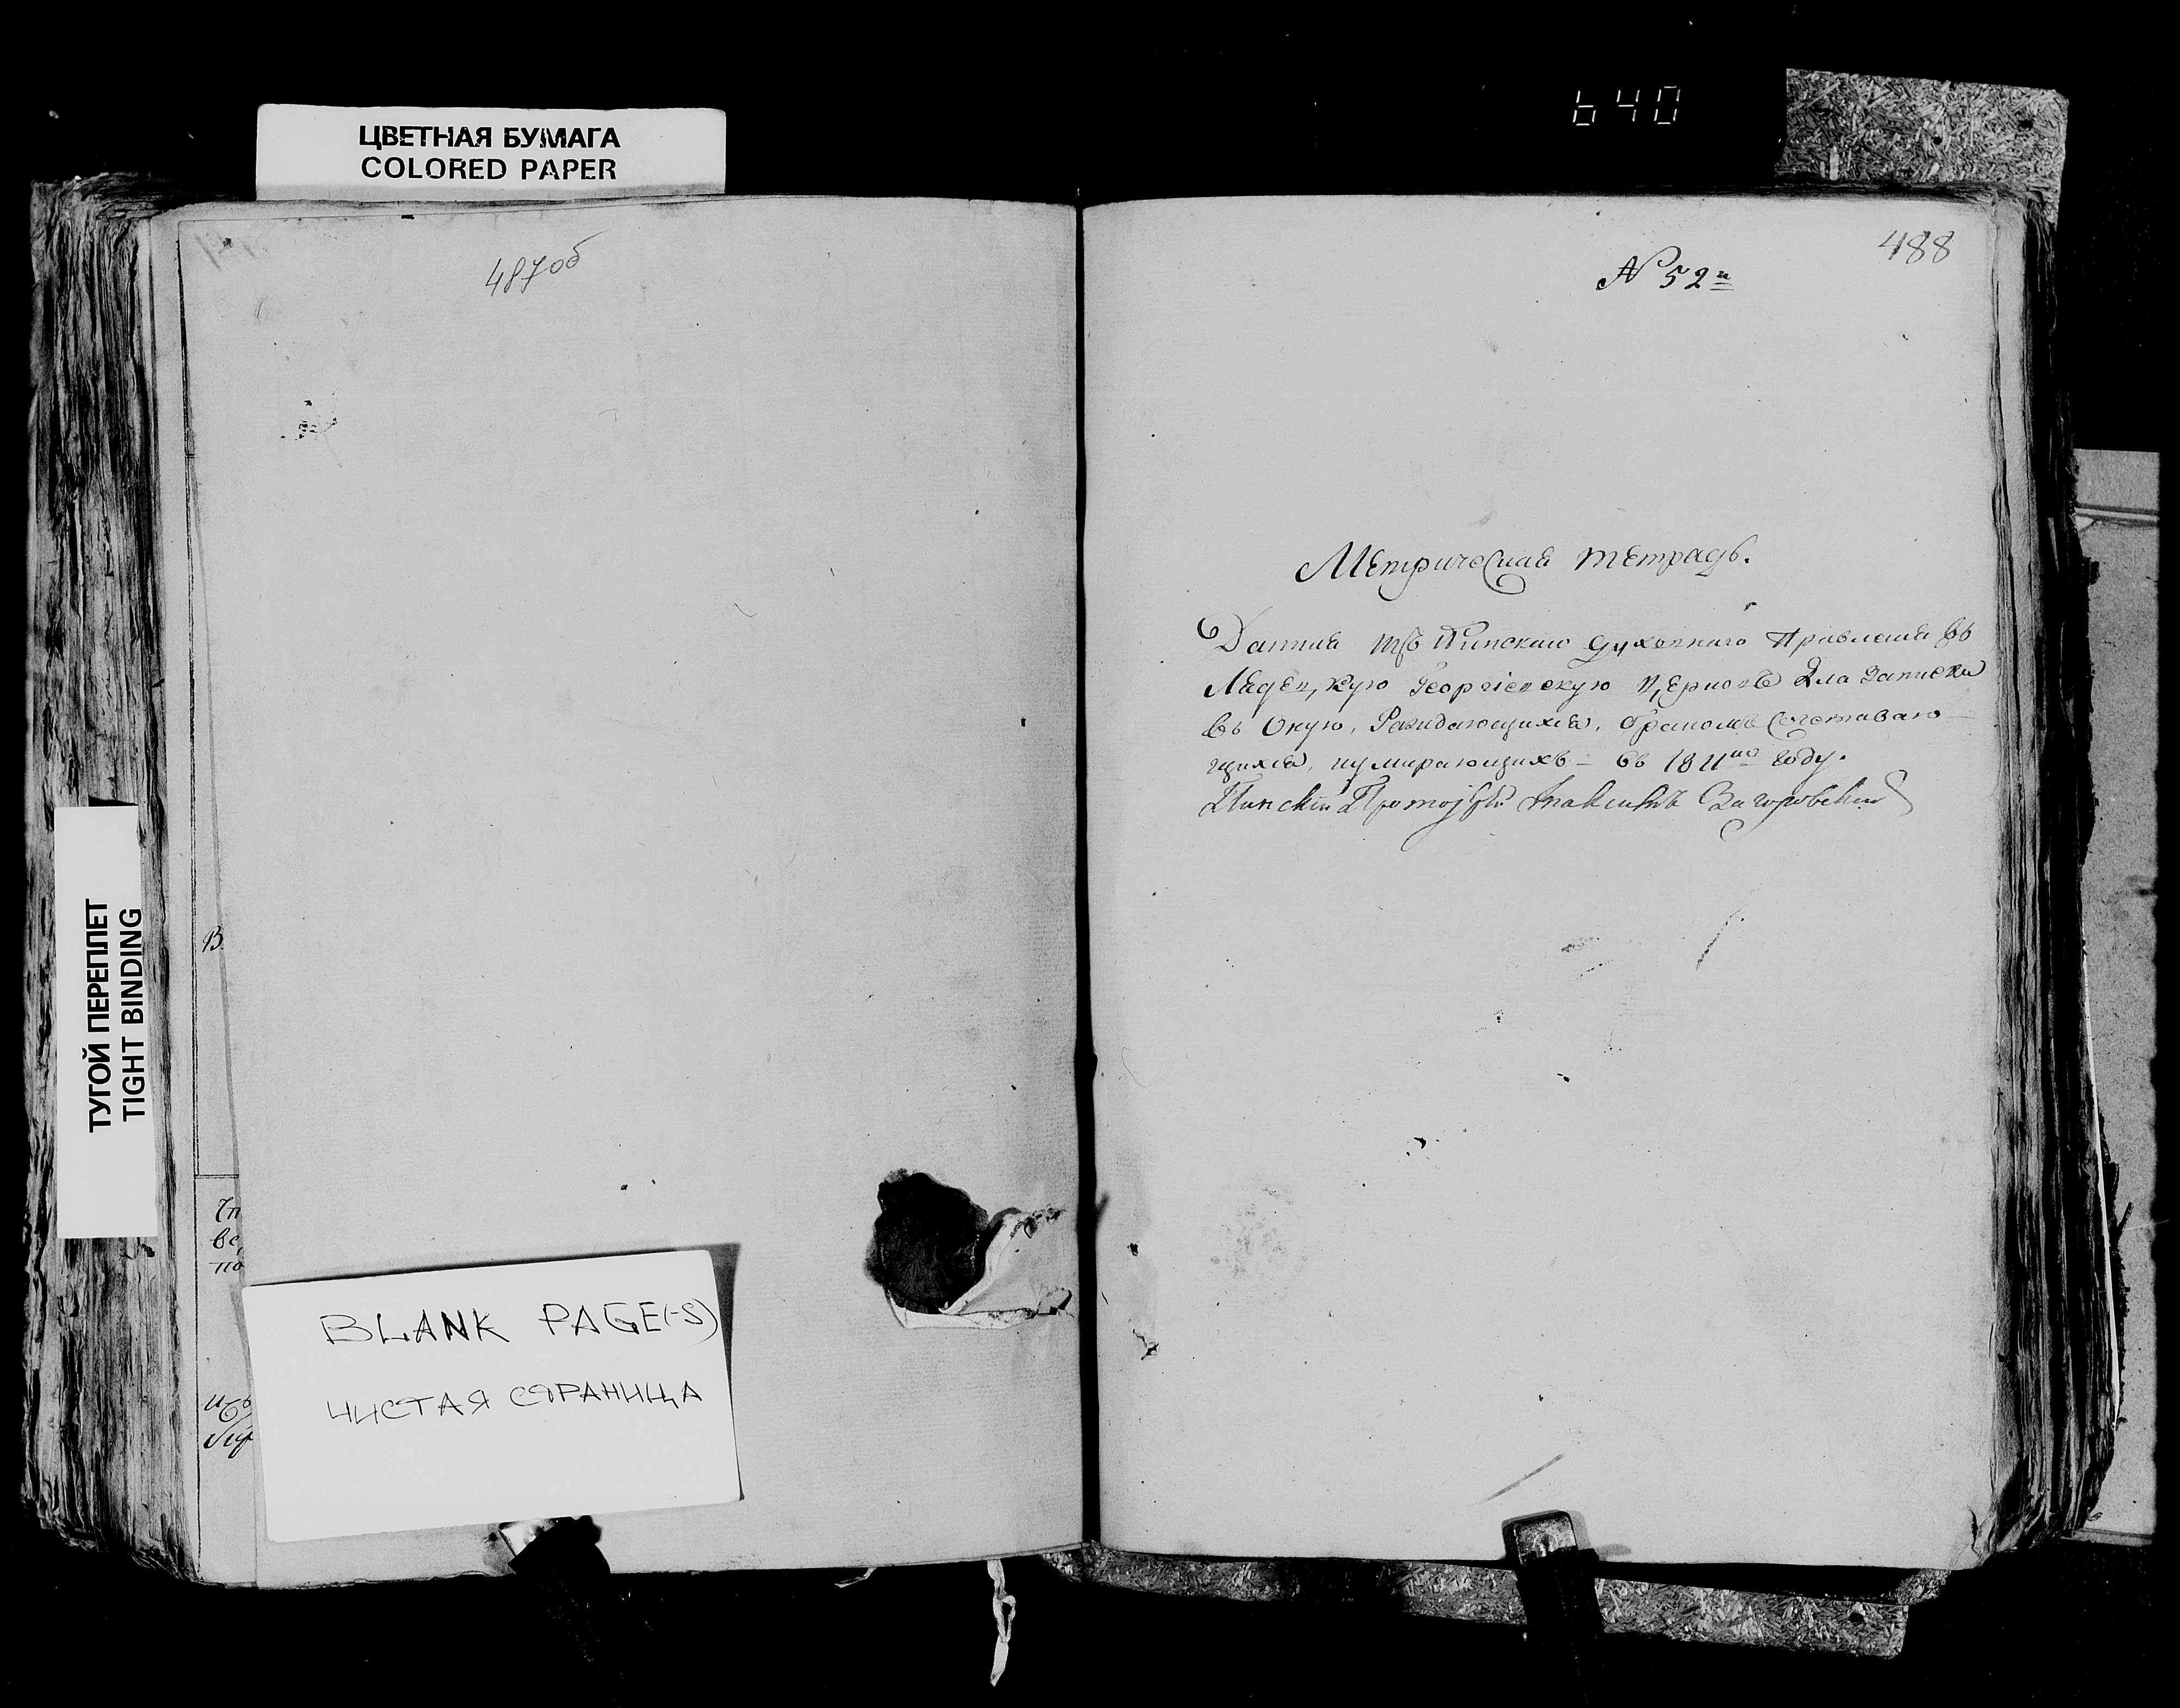 640
ЦВЕТНАЯ БУМАГА
COLORED PAPER
ТУГОЙ ПЕРЕПЛЕТ
TIGHT BINDING
487об
В
ве,
по
BLANK PAGE(-S)
ЧИСТАЯ СТРАНИЦА
488
N 52й
Метрическая тетрадь.
Данная Пинскаго Духовнаго Правления въ
Георгіевскую Церковь Для Записки
въ Оную, Раждающихся, бракомъ Сочетаваю-
щихся, иумирающихъ - въ 1811мъ году.
Пинскій Протоіерей